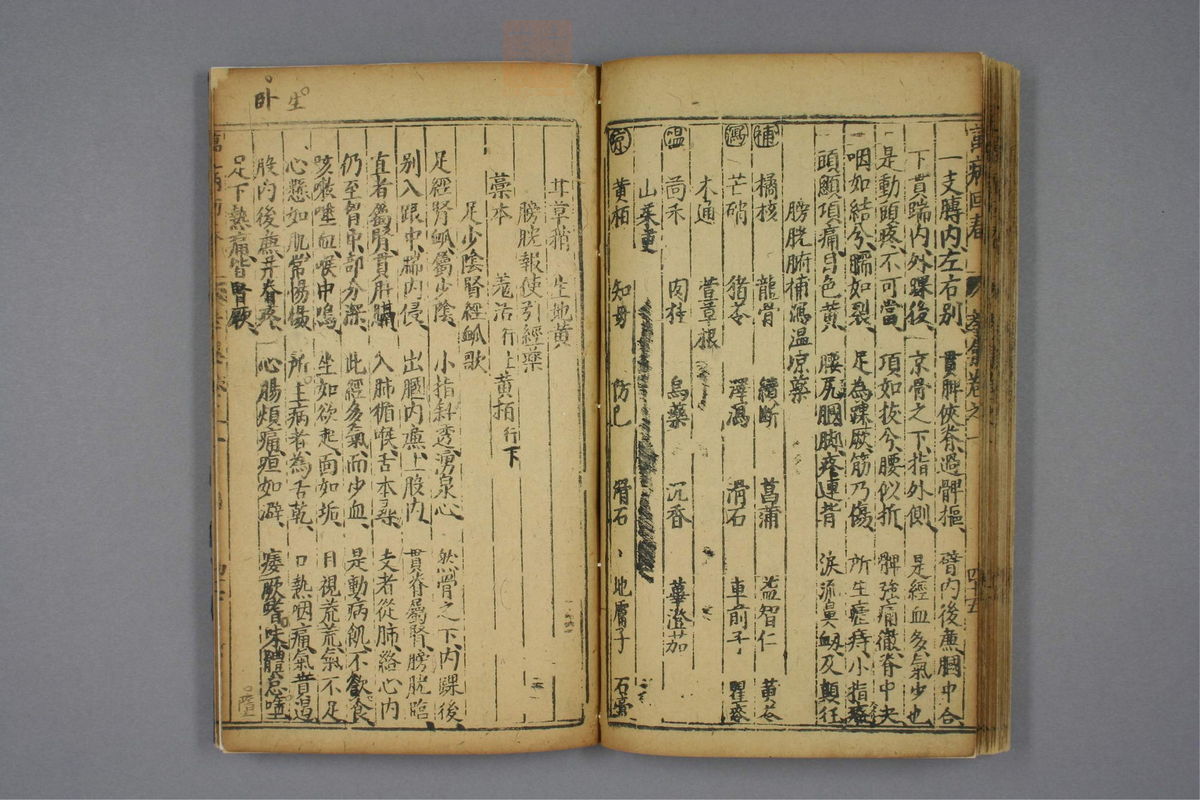 萬病回春
卷之一
四十五
一支膊內左右別 貫胛俠脊過髀樞 臂內後廉膕中合
下貫踹內外踝後 京骨之下指外側 是經血多氣少也
是動頭疼不可當 項如拔兮腰似折 髀強痛徹脊中央
咽如結兮腨如裂 足為踝厥筋乃傷 所生瘧痔小指廢
頭顖項痛目色黃 腰尻膕腳疼連背 淚流鼻衂及顛狂
膀胱腑補瀉溫凉藥
補 橘核 龍骨 續斷 菖蒲 益智仁 黃芩
瀉 芒硝 猪苓 澤瀉 滑石 車前子 瞿麥
木通 萱草根
温 茴禾 肉桂 烏藥 沉香 蓽澄茄
山茱萸
凉 黄栢 知母 防己 滑石 地膚子 石膏
甘草稍 生地黄
膀胱報使引經藥
藁本 羌活行上 黃栢行下
足少陰腎經脉歌
足經腎脉屬少陰 小指斜透湧泉心 然骨之下內踝後
别入跟中腨內侵 出膕內廉上股內 貫脊屬腎膀胱臨
直者屬腎貫肝膈 入肺循喉舌本尋 支者從肺絡心內
仍至胷中部分深 此經多氣而少血 是動病飢不欲食
咳嗽唾血喉中鳴 坐如欲起面如垢 目視𥆨𥆨氣不足
心懸如飢常惕惕 所生病者為舌乾 口熱咽痛氣賁逼
股內後廉并脊疼 心腸煩痛疸如澼 痿厥嗜臥體怠惰
足下熱痛皆腎厥
生
卧